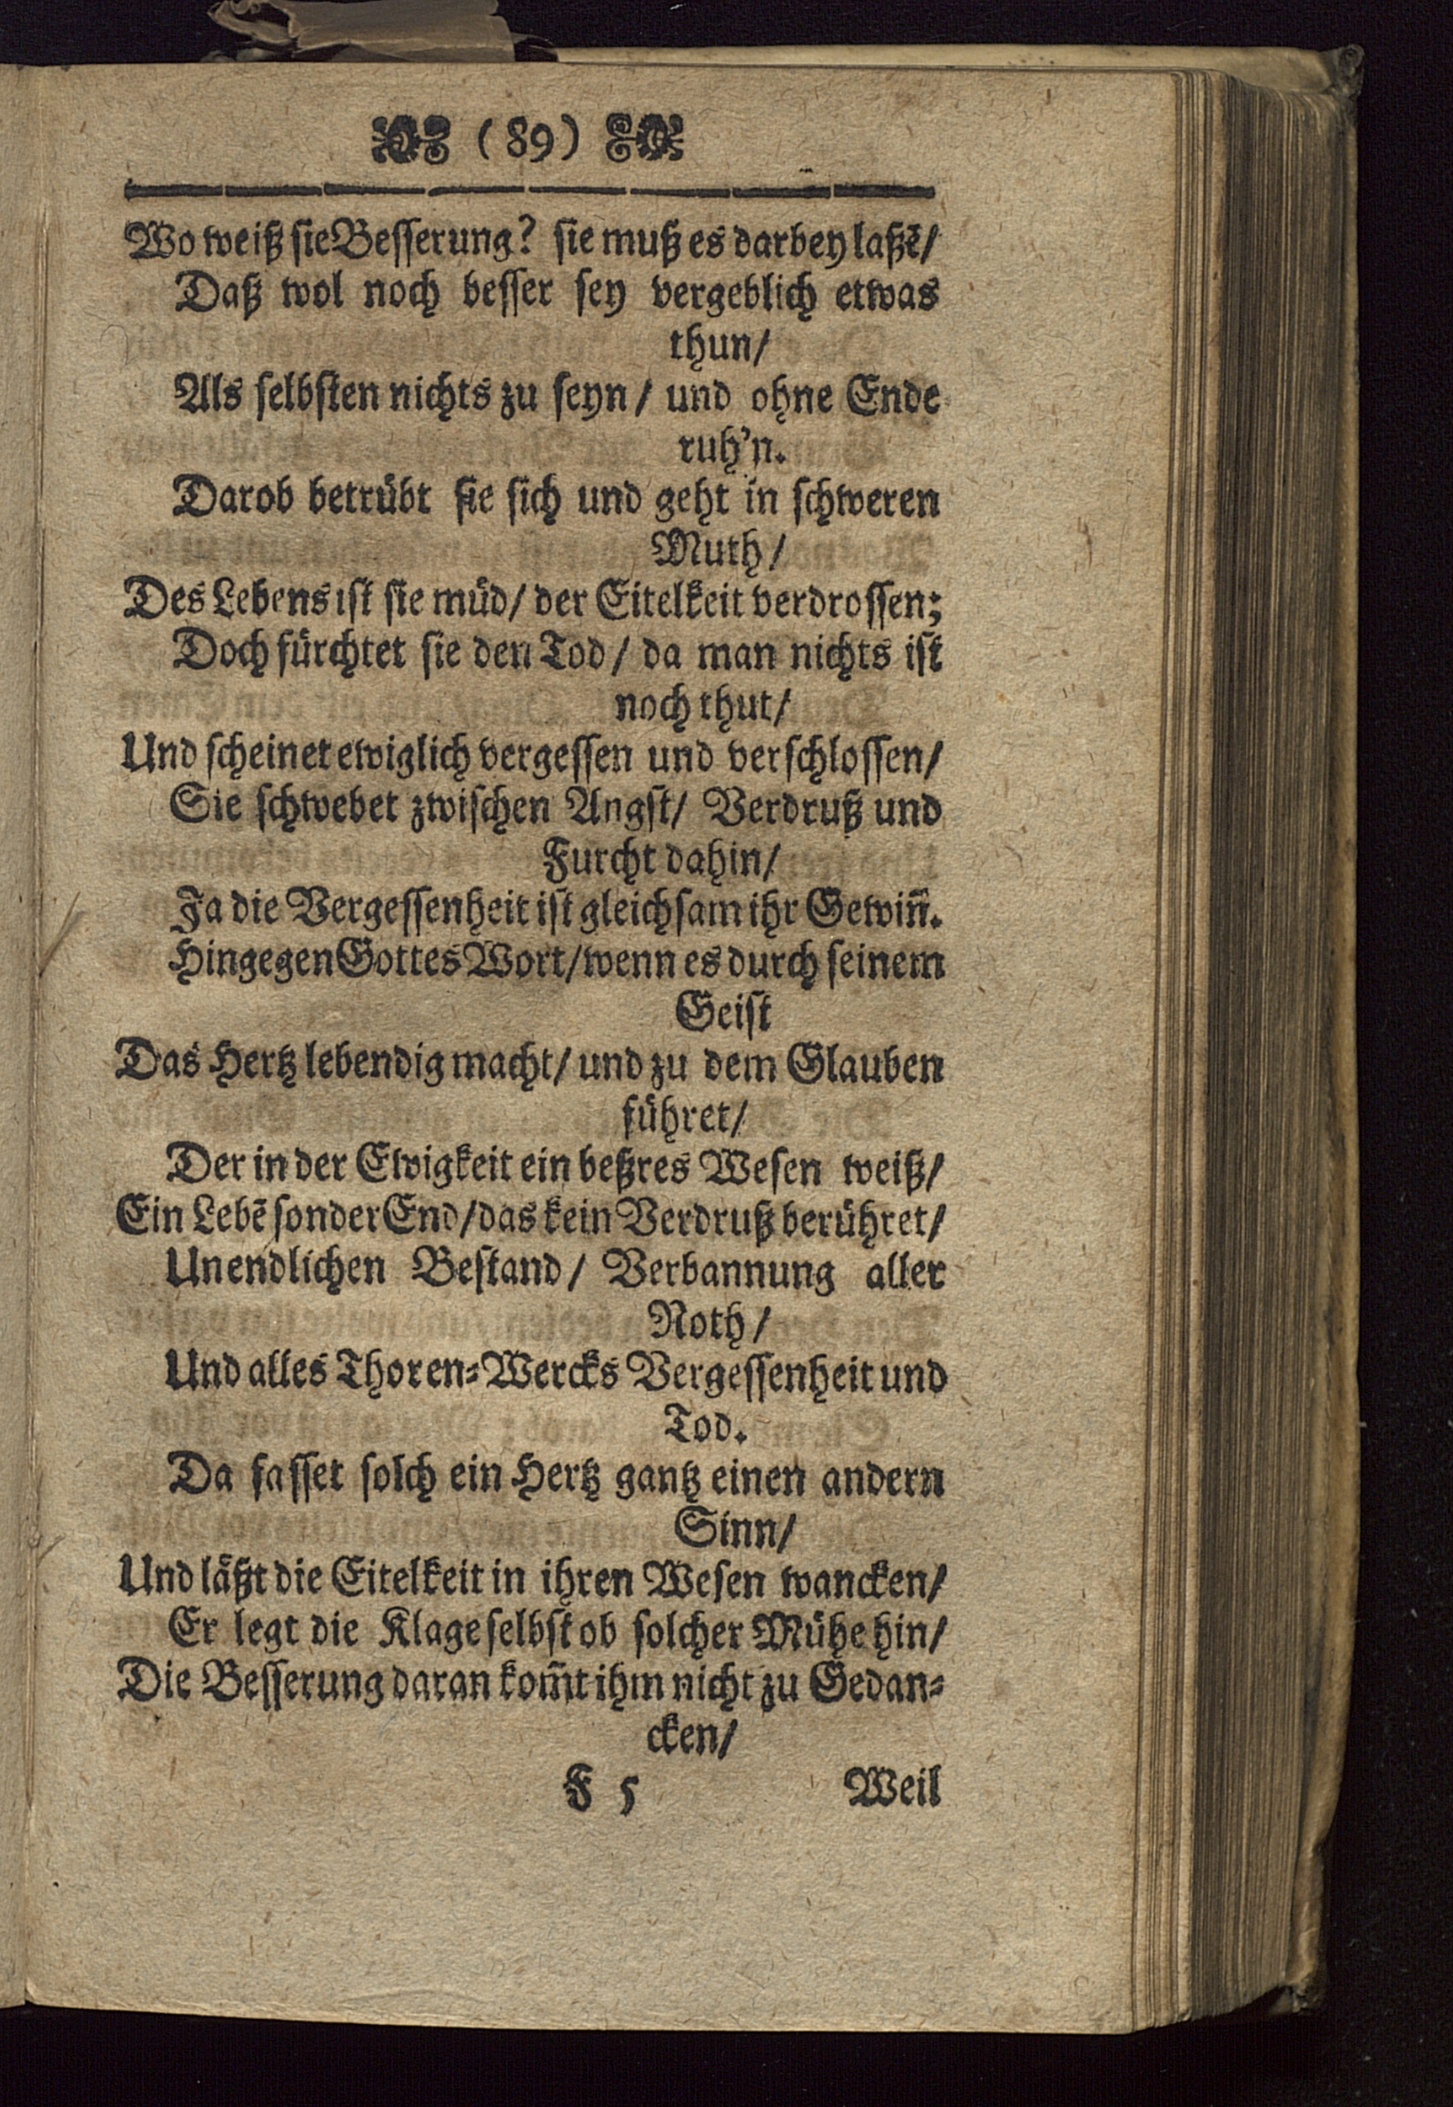 (89)
Wo weiß sie Besserung? sie muß es darbey laßē/
Daß wol noch besser sey vergeblich etwas
thun/
Als selbsten nichts zu seyn/ und ohne Ende
ruh'n.
Darob betrübt sie sich und geht in schweren
Muth/
Des Lebens ist sie müd/ der Eitelkeit verdrossen;
Doch fürchtet sie den Tod/ da man nichts ist
noch thut/
Und scheinet ewiglich vergessen und verschlossen/
Sie schwebet zwischen Angst/ Verdruß und
Furcht dahin/
Ja die Vergessenheit ist gleichsam ihr Gewiñ.
Hingegen Gottes Wort/ wenn es durch seinem
Geist
Das Hertz lebendig macht/ und zu dem Glauben
führet/
Der in der Ewigkeit ein beßres Wesen weiß/
Ein Lebē sonder End/ das kein Verdruß berühret/
Unendlichen Bestand/ Verbannung aller
Noth/
Und alles Thoren-Wercks Vergessenheit und
Tod.
Da fasset solch ein Hertz gantz einen andern
Sinn/
Und läßt die Eitelkeit in ihren Wesen wancken/
Er legt die Klage selbst ob solcher Mühe hin/
Die Besserung daran kom̃t ihm nicht zu Gedan-
cken/
F 5 Weil